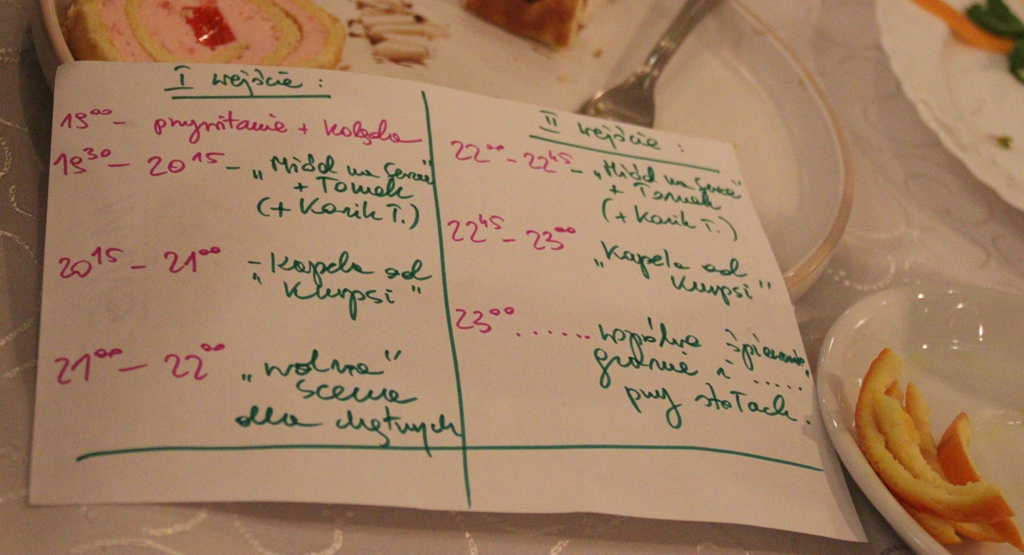 I wejście :
19⁰⁰ - przywitanie + kolęda
19³⁰ - 20¹⁵ - „Miód na serce"
+ Tomek
(+ Kasik T.)
20¹⁵ - 21⁰⁰ - „Kapela od
Kurpsi"
21⁰⁰ - 22⁰⁰ „wolna"
scena
dla chętnych
II wejście :
22⁰⁰ - 22⁴⁵ - „Miód na serce"
+ Tomek
(+ Kasik T.)
22⁴⁵ - 23⁰⁰ „Kapela od
Kurpsi"
23⁰⁰ ....... wspólne śpiewanie,
granie i .....
przy stołach.